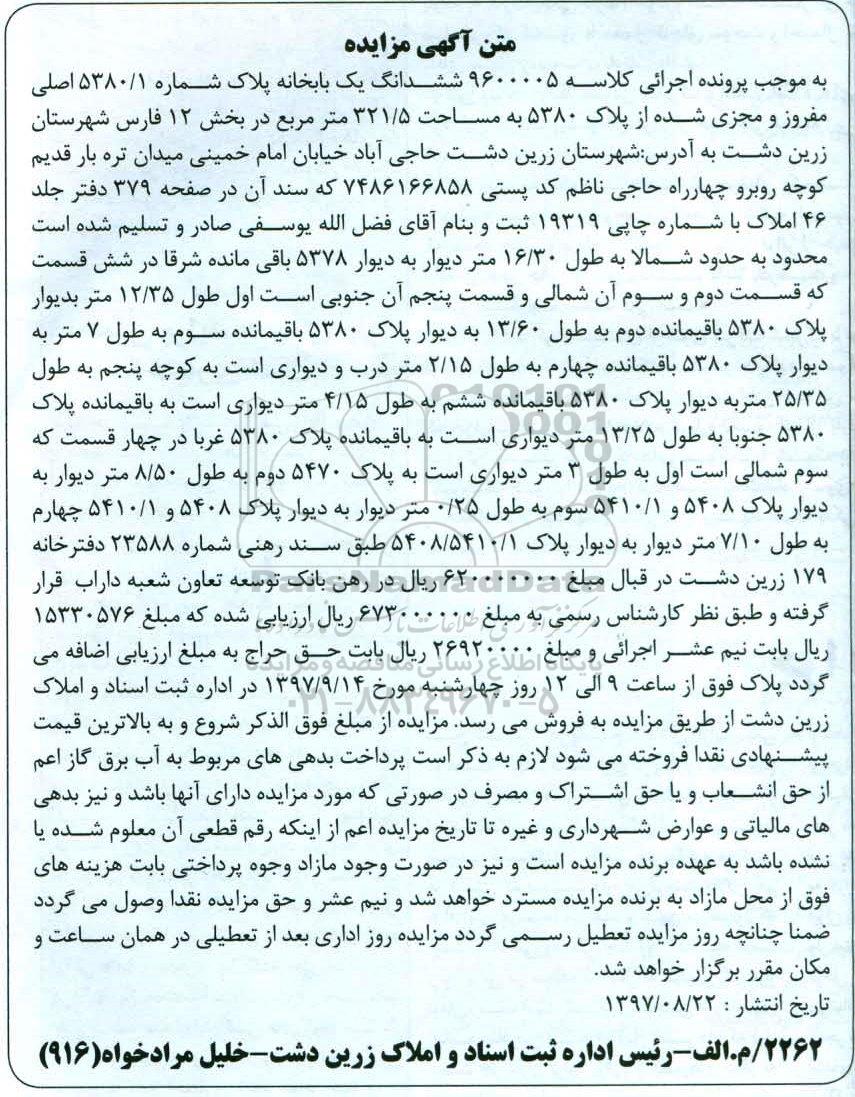 متن آگهی مزایده
به موجب پرونده اجرائی کلاسه ۹۶۰۰۰۰۵ ششدانگ یک بابخانه پلاک شماره ۵۳۸۰/۱ اصلی
مفروز و مجزی شده از پلاک ۵۳۸۰ به مساحت ۳۲۱/۵ متر مربع در بخش ۱۲ فارس شهرستان
زرین دشت به آدرس:شهرستان زرین دشت حاجی آباد خیابان امام خمینی میدان تره بار قدیم
کوچه روبرو چهارراه حاجی ناظم کد پستی ۷۴۸۶۱۶۶۸۵۸ که سند آن در صفحه ۳۷۹ دفتر جلد
۴۶ املاک با شماره چاپی ۱۹۳۱۹ ثبت و بنام آقای فضل الله یوسفی صادر و تسلیم شده است
محدود به حدود شمالا به طول ۱۶/۳۰ متر دیوار به دیوار ۵۳۷۸ باقی مانده شرقا در شش قسمت
که قسمت دوم و سوم آن شمالی و قسمت پنجم آن جنوبی است اول طول ۱۲/۳۵ متر بدیوار
پلاک ۵۳۸۰ باقیمانده دوم به طول ۱۳/۶۰ به دیوار پلاک ۵۳۸۰ باقیمانده سوم به طول ۷ متر به
دیوار پلاک ۵۳۸۰ باقیمانده چهارم به طول ۲/۱۵ متر درب و دیواری است به کوچه پنجم به طول
۲۵/۳۵ متربه دیوار پلاک ۵۳۸۰ باقیمانده ششم به طول ۴/۱۵ متر دیواری است به باقیمانده پلاک
۵۳۸۰ جنوبا به طول ۱۳/۲۵ متر دیواری است به باقیمانده پلاک ۵۳۸۰ غربا در چهار قسمت که
سوم شمالی است اول به طول ۳ متر دیواری است به پلاک ۵۴۷۰ دوم به طول ۸/۵۰ متر دیوار به
دیوار پلاک ۵۴۰۸ و ۵۴۱۰/۱ سوم به طول ۰/۲۵ متر دیوار به دیوار پلاک ۵۴۰۸ و ۵۴۱۰/۱ چهارم
به طول ۷/۱۰ متر دیوار به دیوار پلاک ۵۴۰۸/۵۴۱۰/۱ طبق سند رهنی شماره ۲۳۵۸۸ دفترخانه
۱۷۹ زرین دشت در قبال مبلغ ۶۲۰۰۰۰۰۰۰ ریال در رهن بانک توسعه تعاون شعبه داراب قرار
گرفته و طبق نظر کارشناس رسمی به مبلغ ۶۷۳۰۰۰۰۰۰ ریال ارزیابی شده که مبلغ ۱۵۳۳۰۵۷۶
ریال بابت نیم عشر اجرائی و مبلغ ۲۶۹۲۰۰۰۰ ریال بابت حق حراج به مبلغ ارزیابی اضافه می
گردد پلاک فوق از ساعت ۹ الی ۱۲ روز چهارشنبه مورخ ۱۳۹۷/۹/۱۴ در اداره ثبت اسناد و املاک
زرین دشت از طریق مزایده به فروش می رسد. مزایده از مبلغ فوق الذکر شروع و به بالاترین قیمت
پیشنهادی نقدا فروخته می شود لازم به ذکر است پرداخت بدهی های مربوط به آب برق گاز اعم
از حق انشعاب و یا حق اشتراک و مصرف در صورتی که مورد مزایده دارای آنها باشد و نیز بدهی
های مالیاتی و عوارض شهرداری و غیره تا تاریخ مزایده اعم از اینکه رقم قطعی آن معلوم شده یا
نشده باشد به عهده برنده مزایده است و نیز در صورت وجود مازاد وجوه پرداختی بابت هزینه های
فوق از محل مازاد به برنده مزایده مسترد خواهد شد و نیم عشر و حق مزایده نقدا وصول می گردد
ضمنا چنانچه روز مزایده تعطیل رسمی گردد مزایده روز اداری بعد از تعطیلی در همان ساعت و
مکان مقرر برگزار خواهد شد.
تاریخ انتشار : ۱۳۹۷/۰۸/۲۲
۲۲۶۲/م.الف-رئیس اداره ثبت اسناد و املاک زرین دشت-خلیل مرادخواه(۹۱۶)
ParsNamadData
پایگاه اطلاع رسانی مناقصه و مزایده
۰۲۱-۸۸۳۴۹۶۷۰-۵